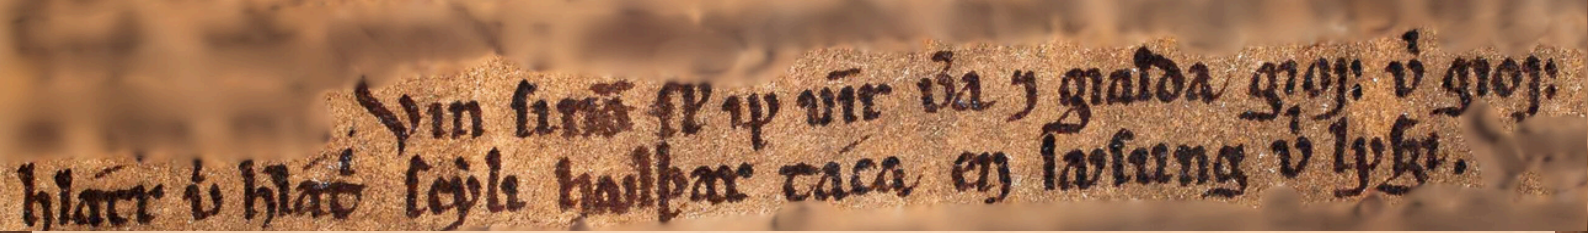 Vin ſinō ſꝉ ᛘ vīr v͛a ⁊ gialda gioꝼ: vͥ gioꝼ:
hlátr vͥ hlátͥ ſcyli hꜹlþar táca eɴ lꜹſung vͥ lygi.